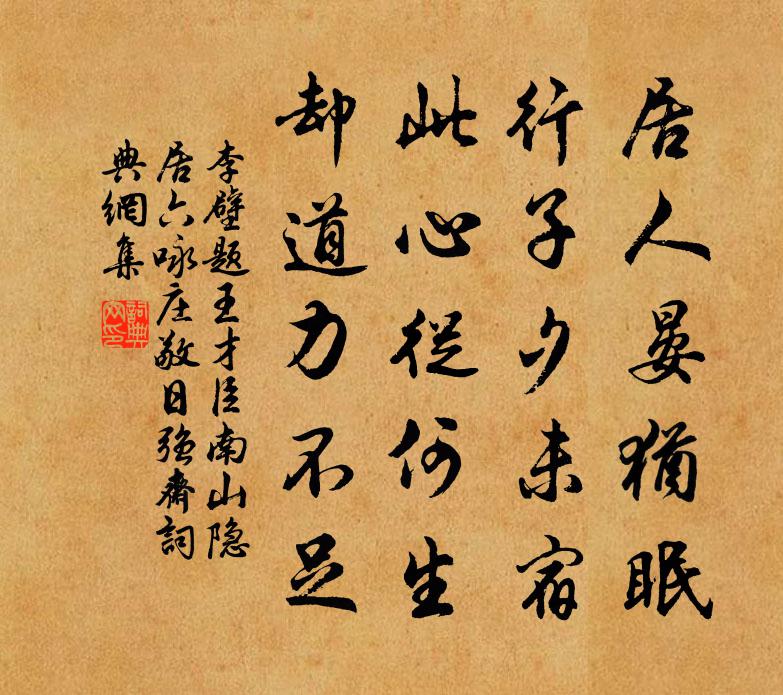 居人晏猶眠
行子夕未宿
此心從何生
却道力不足
李壁題王才臣南山隐
居六咏庄敬日强齋詞
典網集
詞典
网印